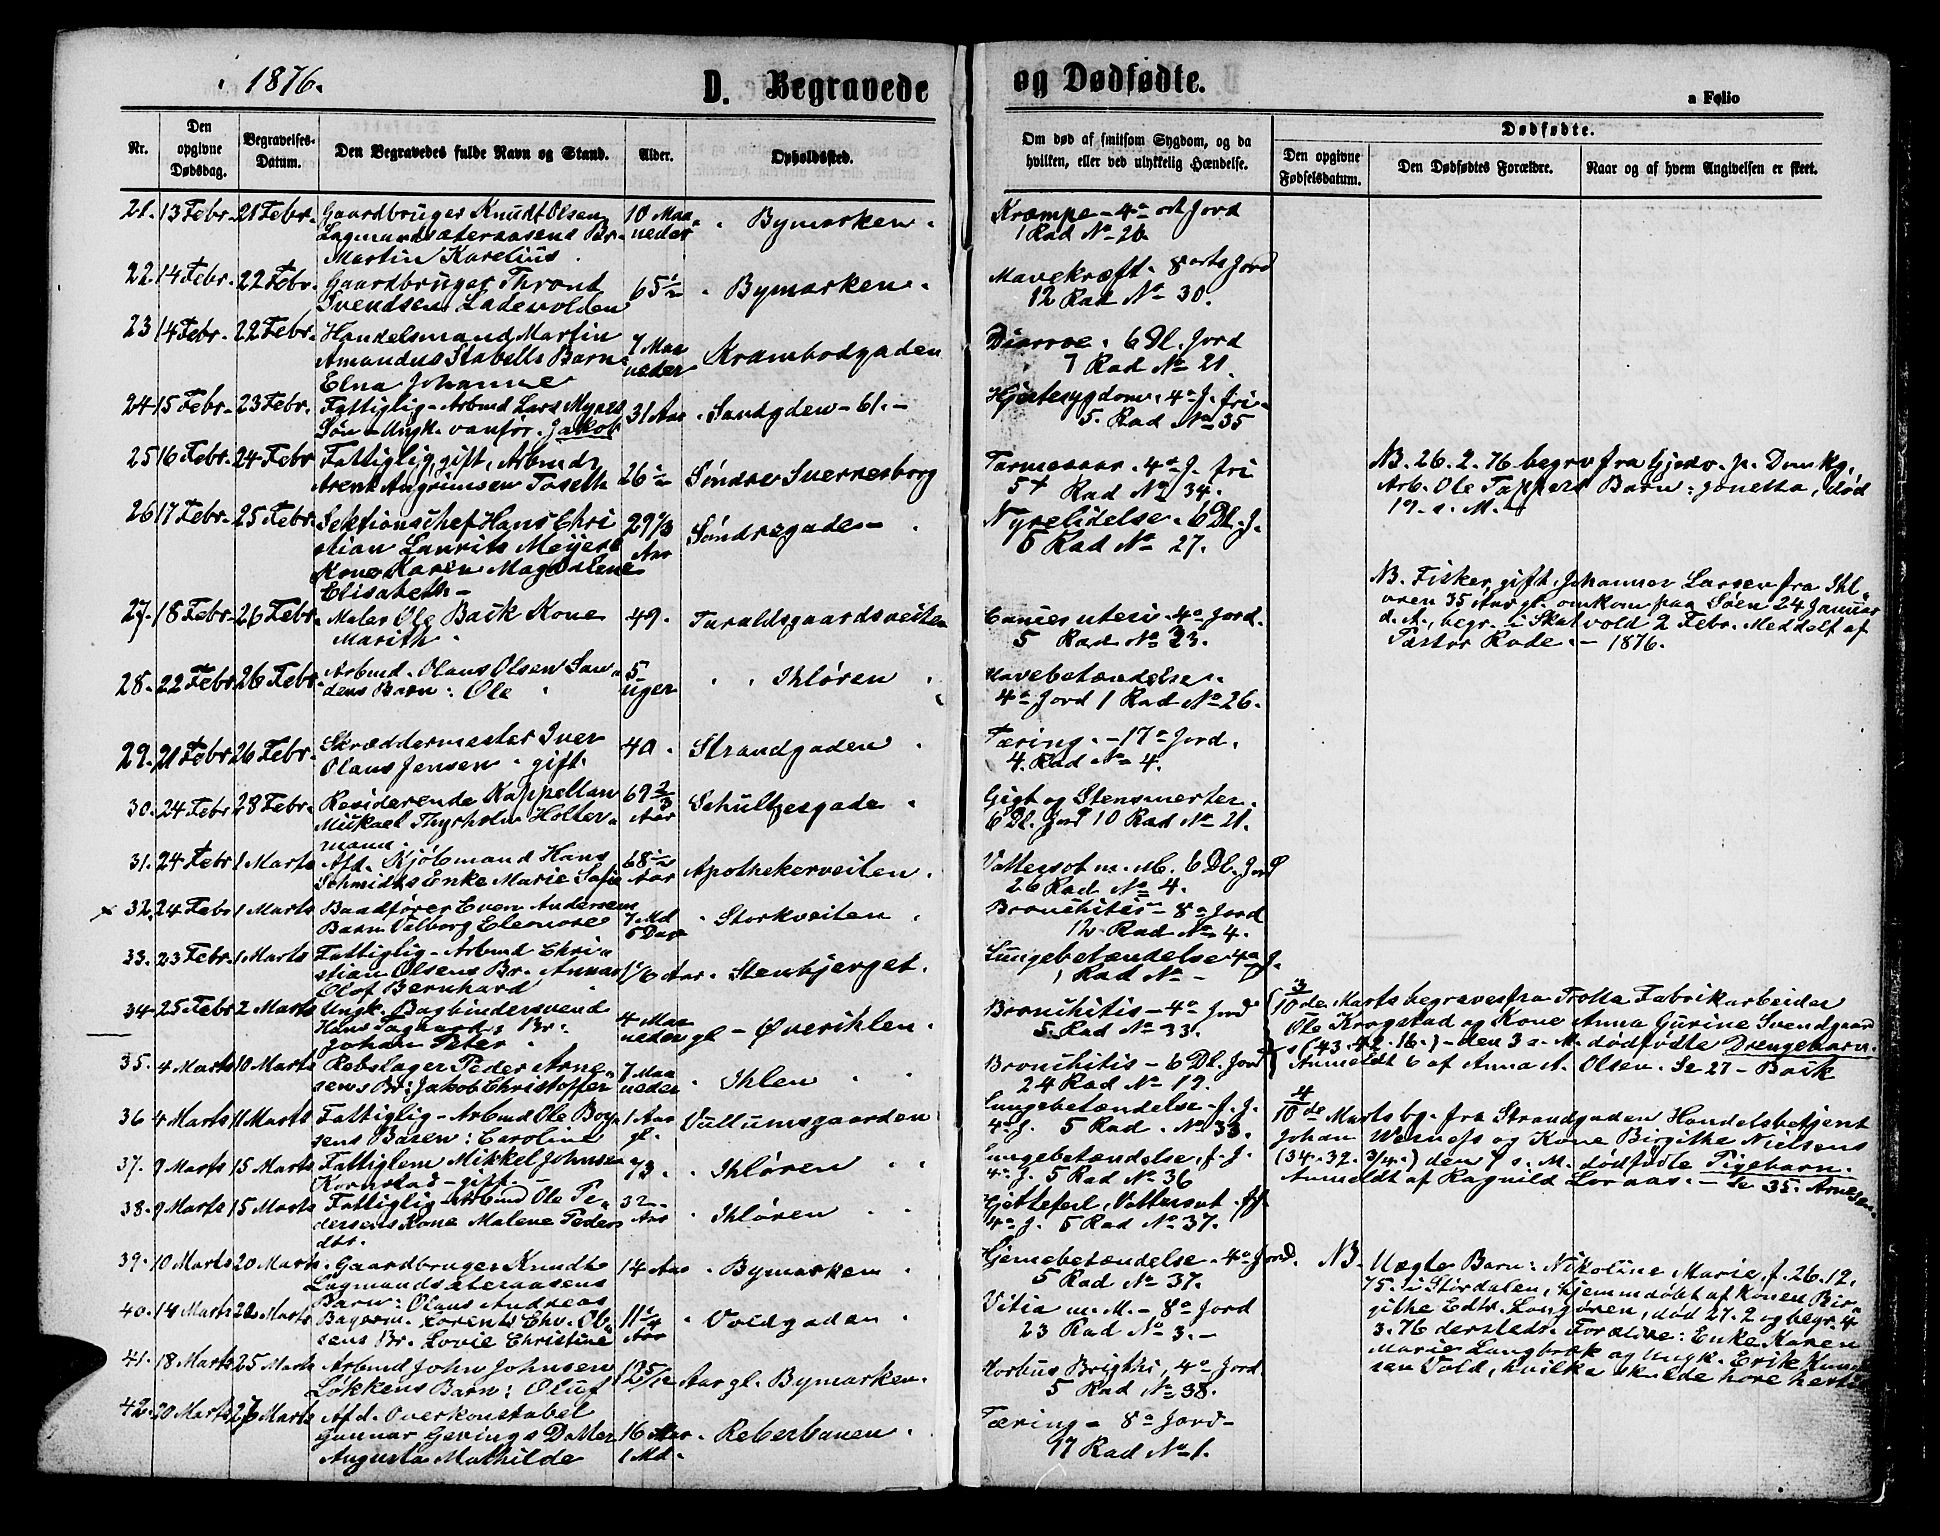 i 1876.
D. Begravede
og Dødfødte.
a Folio
Nr.
Den opgivne Dødsdag.
Begravelses-Datum.
Den Begravedes fulde Navn og Stand.
Alder.
Opholdssted.
Om død af smitsom Sygdom, og da hvilken, eller ved ulykkelig Hændelse.
Dødfødte.
Den opgivne Fødselsdatum.
Den Dødfødtes Forældre.
Naar og af hvem Angivelsen er skeet.
21. 13 Febr. 21 Febr. Gaardbruger Knudt Olsen 10 Maa- Bymarken. Krampe - 4a Jord
Lagmandsæteraasens Br. neder 1 Rad No 26.
Martin Karelius.
22. 14 Febr. 22 Febr. Gaardbruger Thrond 65 1/2 Bymarken. Mavekræft. 8 Jord
Svendsen Ladevolden 12 Rad No 30.
23 14 Febr. 22 Febr. Handelsmand Martin 7 Maa Krambodgaden Diarroe. 6 Dl. Jord
Amandus Stabells Barn neder 7 Rad No 21.
Elna Johanne
24 15 Febr. 23 Febr. Fattiglig - Arbmd Lars Myres 31 Aar Sandgden - 61. - Hjertesygdom. 4a J. fri -
Søn - Ungk. vanfør. Jakob 5. Rad No 35
25 16 Febr. 24 Febr Fattiglig, gift, Arbmd 26 1/2 Søndre Sverresborg Tarmesaar. 4a J. fri
Arent Angrimsen Toseth 5 Rad No 34.
NB. 26. 2. 76 begrv fra Gjedv. p. Domkg.
Arb. Ole Tappers Barn: Jonetta, død
19. s. M.
26 17 Febr. 25 Febr. Sektionschef Hans Chri 29 1/3 Søndregaden Nyrelidelse. 6 Dl. J.
stian Laurits Meyers Aar 5 Rad No 27.
Kone Karen Magdalene
Elisabeth -
NB. Fisker, gift, Johannes Larsen fra Ihl-
øren 35 Aar gl. omkom paa Søen 24 Januar
d. A., begr. i Skatvold 2 Febr. Meddelt af
Pastor Rode. - 1876.
27. 18 Febr. 26 Febr. Maler Ole Back Kone 49. Taraldsgaardsveiten Cancer uteri. 4a Jord.
Marith. 5 Rad No 23.
28. 22 Febr 26 Febr. Arbmd. Olaus Olsen San- 5 Ihløren Mavebetændelse.
dens Barn: Ole uger 4a Jord 1 Rad No 26.
29. 21 Febr 26 Febr. Skræddermester Iver 40. Strandgaden Tæring. - 17a Jord.
Olaus Jensen. gift. 4. Rad No 4.
30. 24 Febr 28 Febr. Residerende Kappellan 69 2/3 Schultzesgade. Gigt og Stensmerter.
Mikael Thyrholm Holter- Aar 6 Dl. Jord 10 Rad No 21.
mann.
31. 24 Febr 1 Marts Afd. Kjøbmand Hans 68 1/2 Apothekerveiten. Vattersot m. M. 6 Dl. Jord
Schmidts Enke Marie Sofie Aar 26 Rad No 4.
x 32. 24 Febr 1 Marts Baadfører Even Andersens 7 Md Storkveiten Bronchitis - 8a Jord
Barn Valborg Eleonore 5 Dage 12 Rad No 4.
33. 23 Febr. 1 Marts Fattiglig - Arbmd Chri- 1/6 Aar. Stenbjerget. Lungebetændelse 4a J.
stian Olsens Br. Annar 1 Rad No -
Olof Bernhard
34. 25 Febr 2 Marts Ungk. Bogbindersvend 4 Maa Øverihlen. Bronchitis - 4a Jord
Hans Br. neder gl. 5. Rad No 33.
Johan Peter
3/10de Marts begraves fra Trolla Fabrikarbeider
Ole Krogstad og Kone Anna Gurine Svendgaard
s (43. 42. 16.) - den 3 s. M. dødfødte Drengebarn.
Anmeldt 6 af Anna A. Olsen. Se 27 - Baik
35. 4 Marts 10 Marts Rebslager Peder Arne- 7 Maa Ihlen Bronchitis - 6 Dl. Jord
sens Br: Jakob Christoffer neder 24 Rad No 19.
36 4 Marts 11 Marts Fattiglig - Arbmd Ole Boy- 1 Aar Vullumsgaarden Lungebetændelse - f. J.
sens Baren: Caroline gl. 4a J. 5 Rad. No 33.
4/10de Marts bg. fra Strandgaden Handelsbetjent
Johan og Kone Birgithe Nielsens
(34. 32. 3/4.) den s. M. dødfødte Pigebarn.
Anmeldt af Ragnild Loraas. - Se 35. Arnesen
37. 9 Marts 15 Marts Fattiglem Mikkel Johnsen 73. Ihløren Lungebetændelse, f. J.
Kornstad - gift. - 4a J. 5 Rad No 36
38. 9 Marts 15 Marts Fattiglig - Arbmd Ole Pe- 32 Ihløren Hjertefeil, Vattersot. f J.
dersens Kone Malene Peders Aar 4a J. 5 Rad No 37.
dtr.
39. 10 Marts 20 Marts. Gaardbruger Knudt 14 Aar Bymarken Hjernebetændelse. 4a Jord.
Lagmandsæteraasens 5 Rad No 37.
Barn: Olaus Andreas
NB. Uægte Barn: Nikoline Marie, f. 26. 12.
75. i Stördalen, hjemmedøbt af Konen Bir-
githe Edtr. Langøren, død 27. 2 og begr. 4
3. 76 dersteds. Forældre: Enke Karen
Marie Langbæk og Ungk. Erik Knud
sen Vold, hvilke skulde høre hertil
40. 14 Marts 20 Marts Bagerm. Lorents Chr. Ol- 11 1/4 Voldgaden Vitia m. M. - 8a Jord
sens Br. Lovie Christine Aar 23 Rad No 3. -
41. 18 Marts 25 Marts Arbmd John Johnsen 1 5/12 Aar gl. Bymarken. Morbus Brigthi, 4a Jord
Løkkens Barn: Oluf 5 Rad No 38.
42. 20 Marts 27 Marts Afd. Overkonstabel 16 Aar Reberbanen. Tæring - 8a Jord -
Gunnar Gevings Datter 1 Md. 17 Rad No 1.
Augusta Mathilde